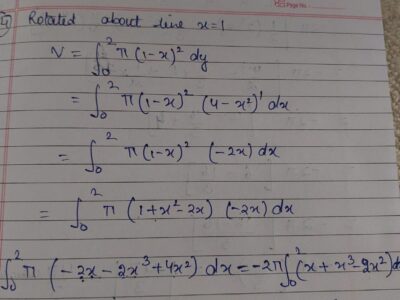 Page No.
4) Rotated about line x=1
V = ∫₀² π (1-x)² dy
= ∫₀² π (1-x)² (4-x²)' dx
= ∫₀² π (1-x)² (-2x) dx
= ∫₀² π (1+x²-2x) (-2x) dx
∫₀² π (-2x-2x³+4x²) dx = -2π ∫₀² (x+x³-2x²) dx